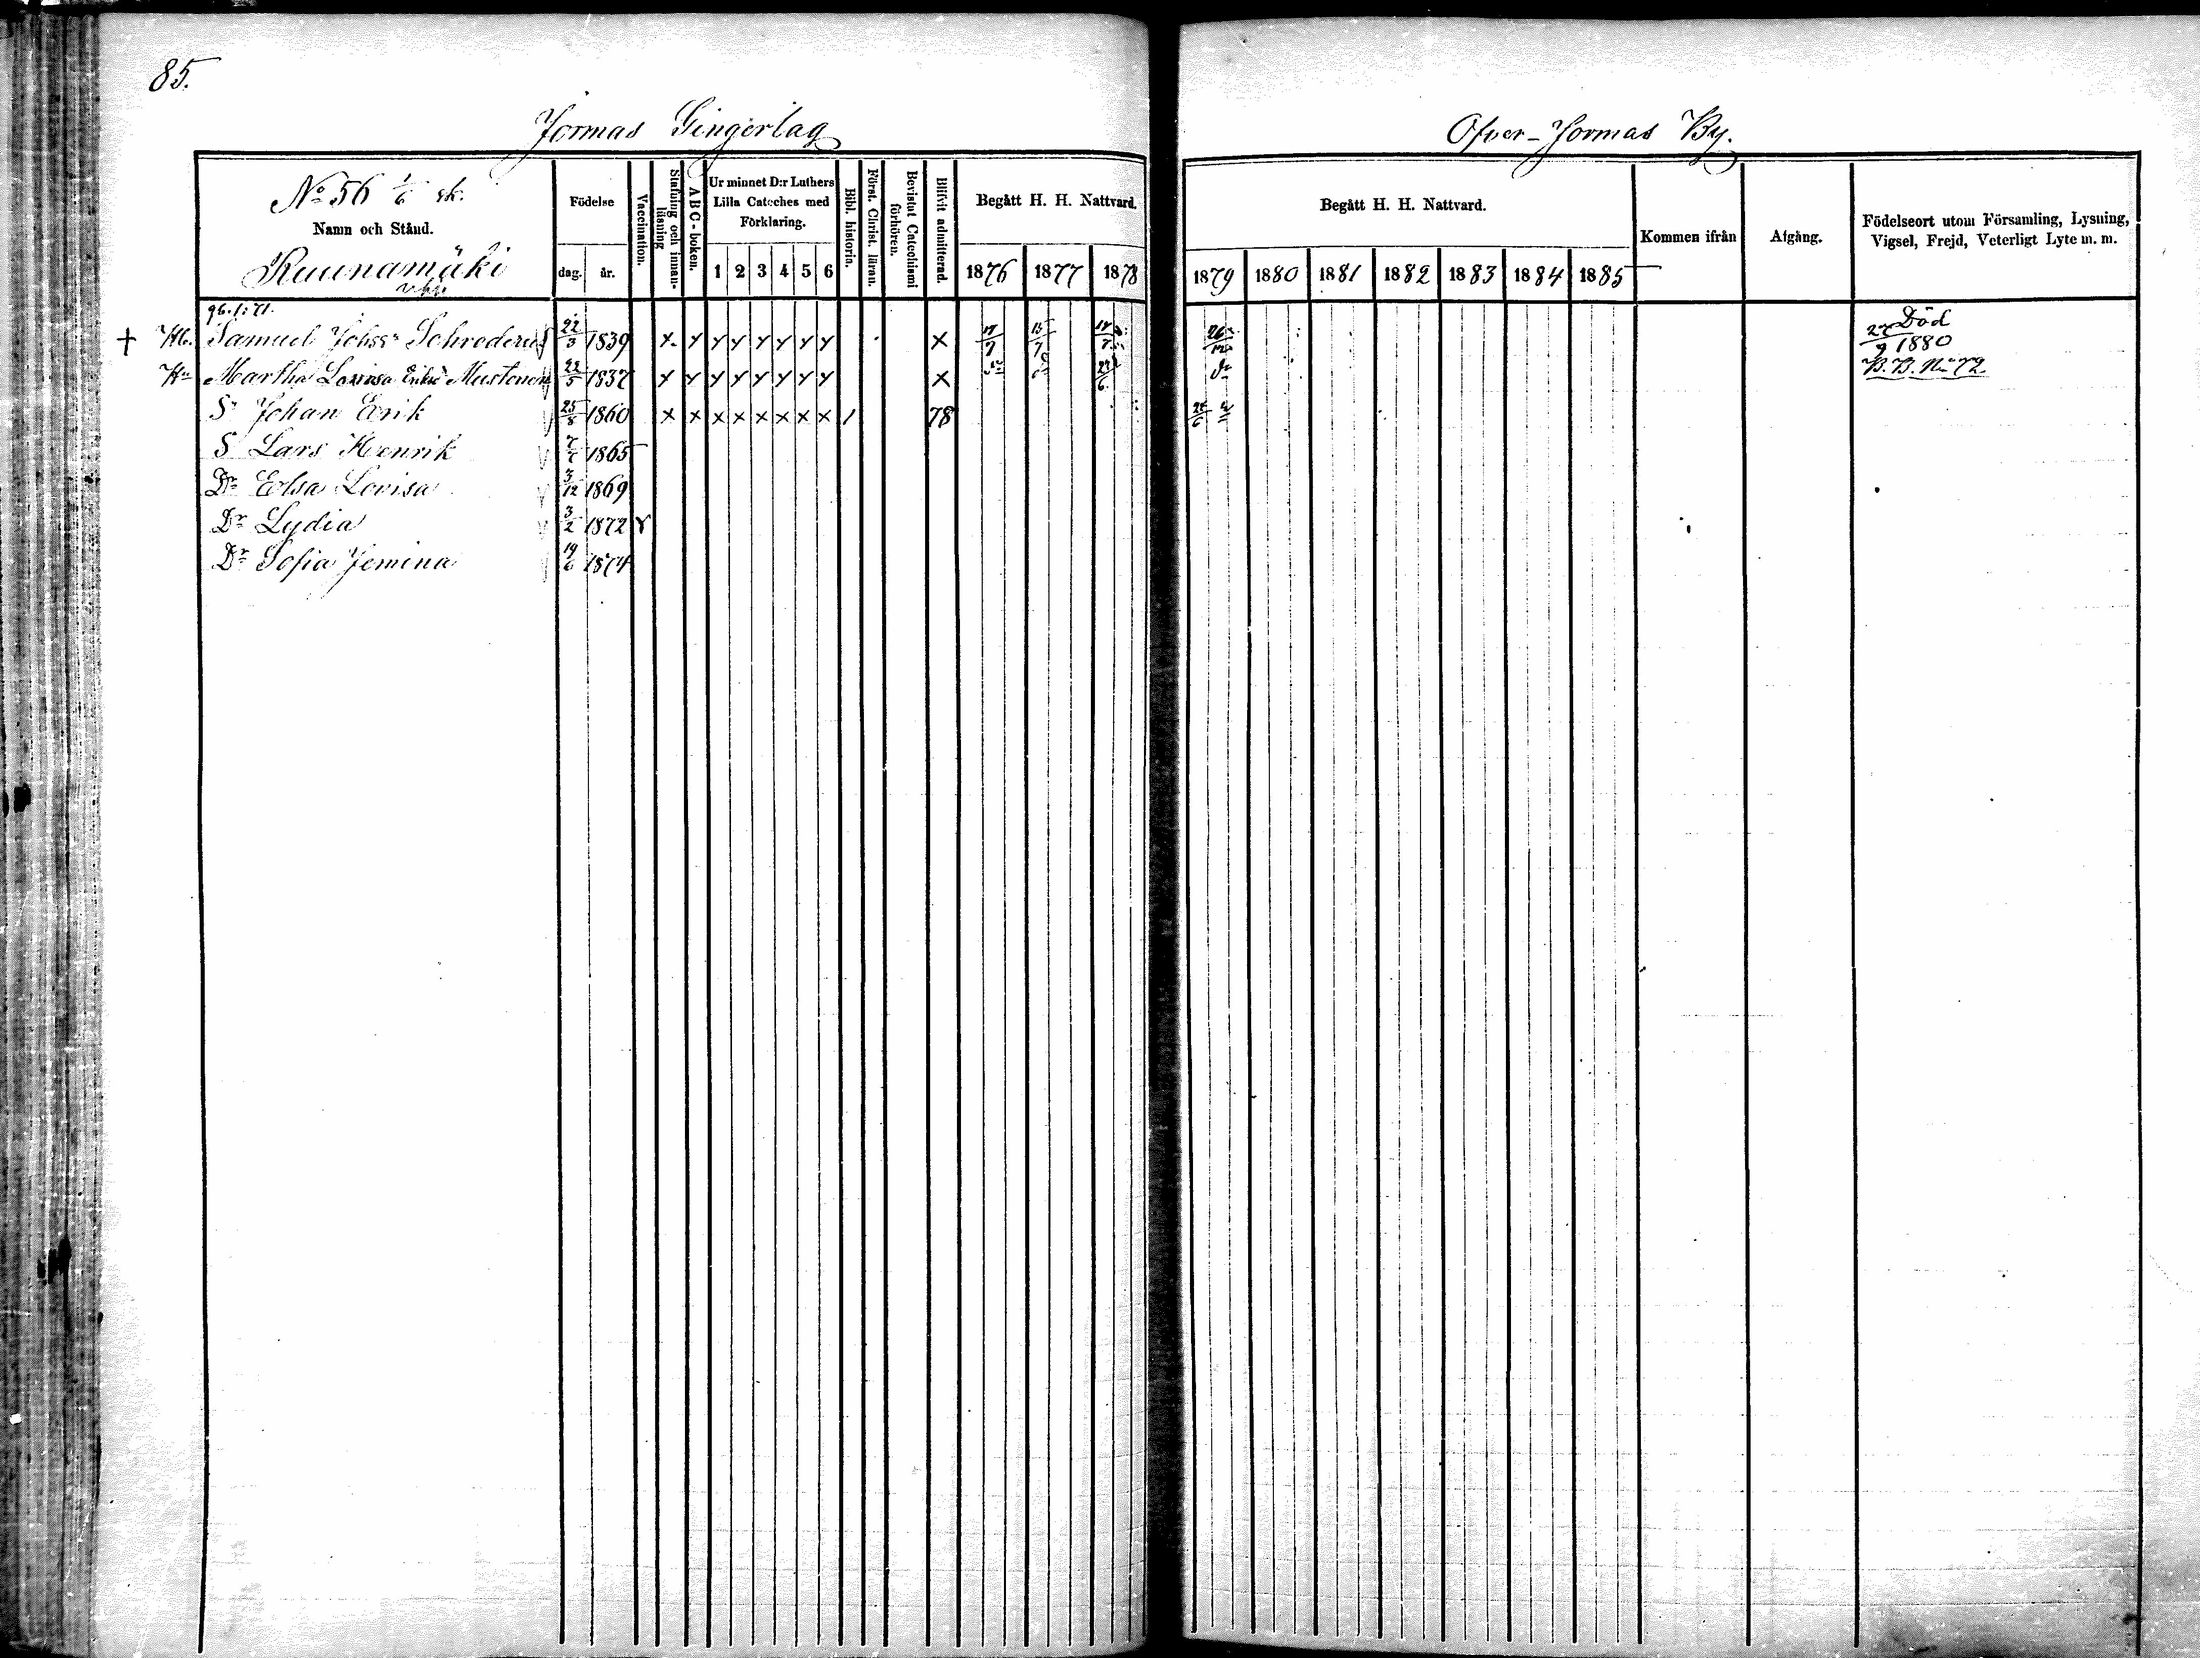 85.
Jormas Gingerlag
Ofver-Jormas By.
No 56 1/6 sk.
Namn och Stånd.
Ruunamäki
Födelse
dag. år.
Vaccination.
Stafning och innanläsning
ABC-boken.
Ur minnet D:r Luthers Lilla Cateches med Förklaring.
1 2 3 4 5 6
Bibl. historia.
Först. Christ. läran.
Bevistat Catechismi förhören.
Blifvit admitterad.
Begått H. H. Nattvard.
1876 1877 1878
Begått H. H. Nattvard.
1879 1880 1881 1882 1883 1884 1885
Kommen ifrån
Afgång.
Födelseort utom Församling, Lysning,
Vigsel, Frejd, Veterligt Lyte m. m.
96.1:71.
† Hb. Samuel Johss Schroderus 22/3 1839 x x x x x x x x x 17/9 15/7 26/12 Död
27/9 1880
Hu Martha Lovisa Eriksd Mustonen 22/5 1837 x x x x x x x x x do B.B. No 72
S. Johan Erik 25/8 1860 x x x x x x x x 1 78
S Lars Henrik 7/7 1865
Dr Elsa Lovisa 3/12 1869
Dr Lydia 3/2 1872 v
Dr Sofia Jemina 19/6 1874